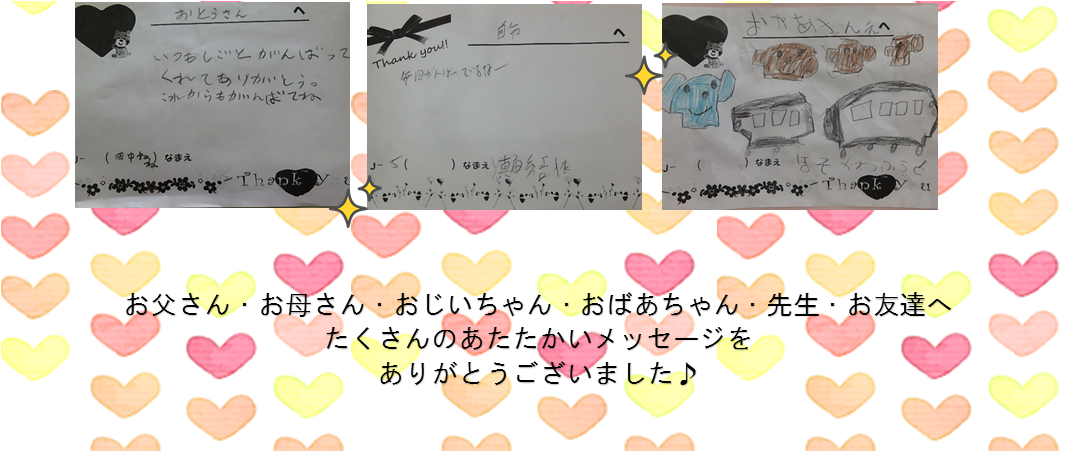 おとうさん へ
いつもしごとがんばって
くれてありがとう。
これからもがんばってね
なまえ
Thank you
Thank you!!
自分 へ
なまえ
おかあさんえ へ
なまえ
Thank you
お父さん・お母さん・おじいちゃん・おばあちゃん・先生・お友達へ
たくさんのあたたかいメッセージを
ありがとうございました♪